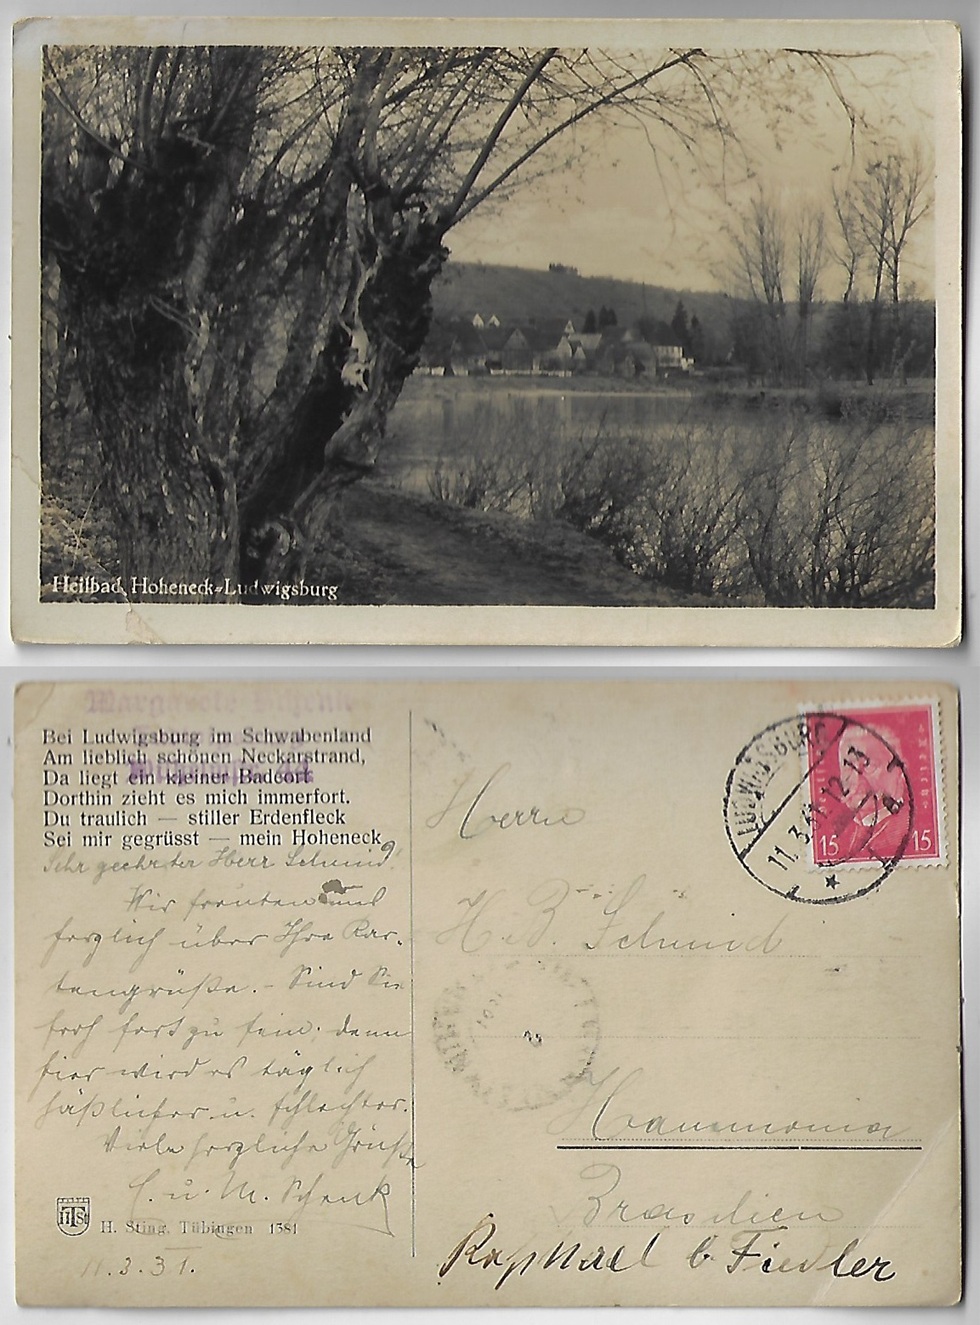 Heilbad Hoheneck-Ludwigsburg
Margarete Schenk
Bei Ludwigsburg im Schwabenland
Am lieblich schönen Neckarstrand,
Da liegt ein kleiner Badeort
Dorthin zieht es mich immerfort.
Du traulich — stiller Erdenfleck
Sei mir gegrüsst — mein Hoheneck
Sehr geehrter Herr Schmid!
Wir freuten uns
herzlich über Ihre Kar-
tengrüße. - Sind Sie
froh fort zu sein, denn
hier wird es täglich
häßlicher u. schlechter.
Viele herzliche Grüße
E. u. M. Schenk
HTSt
H. Sting, Tübingen 1381
11.3.31.
LUDWIGSBURG
11.3.31.12-13
Deutsches Reich
15 15
Herrn
H. B. Schmid
Hammonia
Brasilien
Raphael b Fiedler